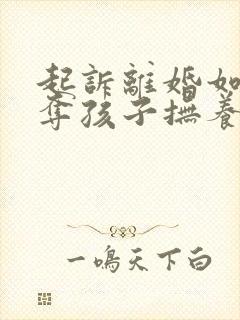 起訴離婚如
奪孩子撫養
一鳴天下白